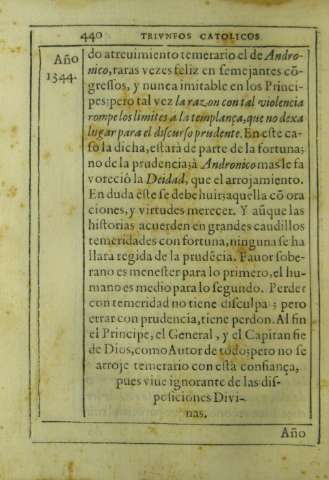 440 TRIVNFOS CATOLICOS.
Año
1344.
do atreuimiento temerario el de Andro-
nico, raras vezes feliz en semejantes cõ-
gressos, y nunca imitable en los Princi-
pes; pero tal vez la razon con tal violencia
rompe los limites a la templança, que no dexa
lugar para el discurso prudente. En este ca-
so la dicha, estarà de parte de la fortuna;
no de la prudencia; à Andronico mas le fa
voreciò la Deidad, que el arrojamiento.
En duda este se debe huir; aquella cõ ora
ciones, y virtudes merecer. Y aũque las
historias acuerden en grandes caudillos
temeridades con fortuna, ninguna se ha
llara regida de la prudẽcia. Fauor sobe-
rano es menester para lo primero, el hu-
mano es medio para lo segundo. Perder
con temeridad no tiene disculpa; pero
errar con prudencia, tiene perdon. Al fin
el Principe, el General, y el Capitan fie
de Dios, como Autor de todo; pero no se
arroje temerario con esta confiança,
pues viue ignorante de las dis-
posiciones Divi-
nas.
Año